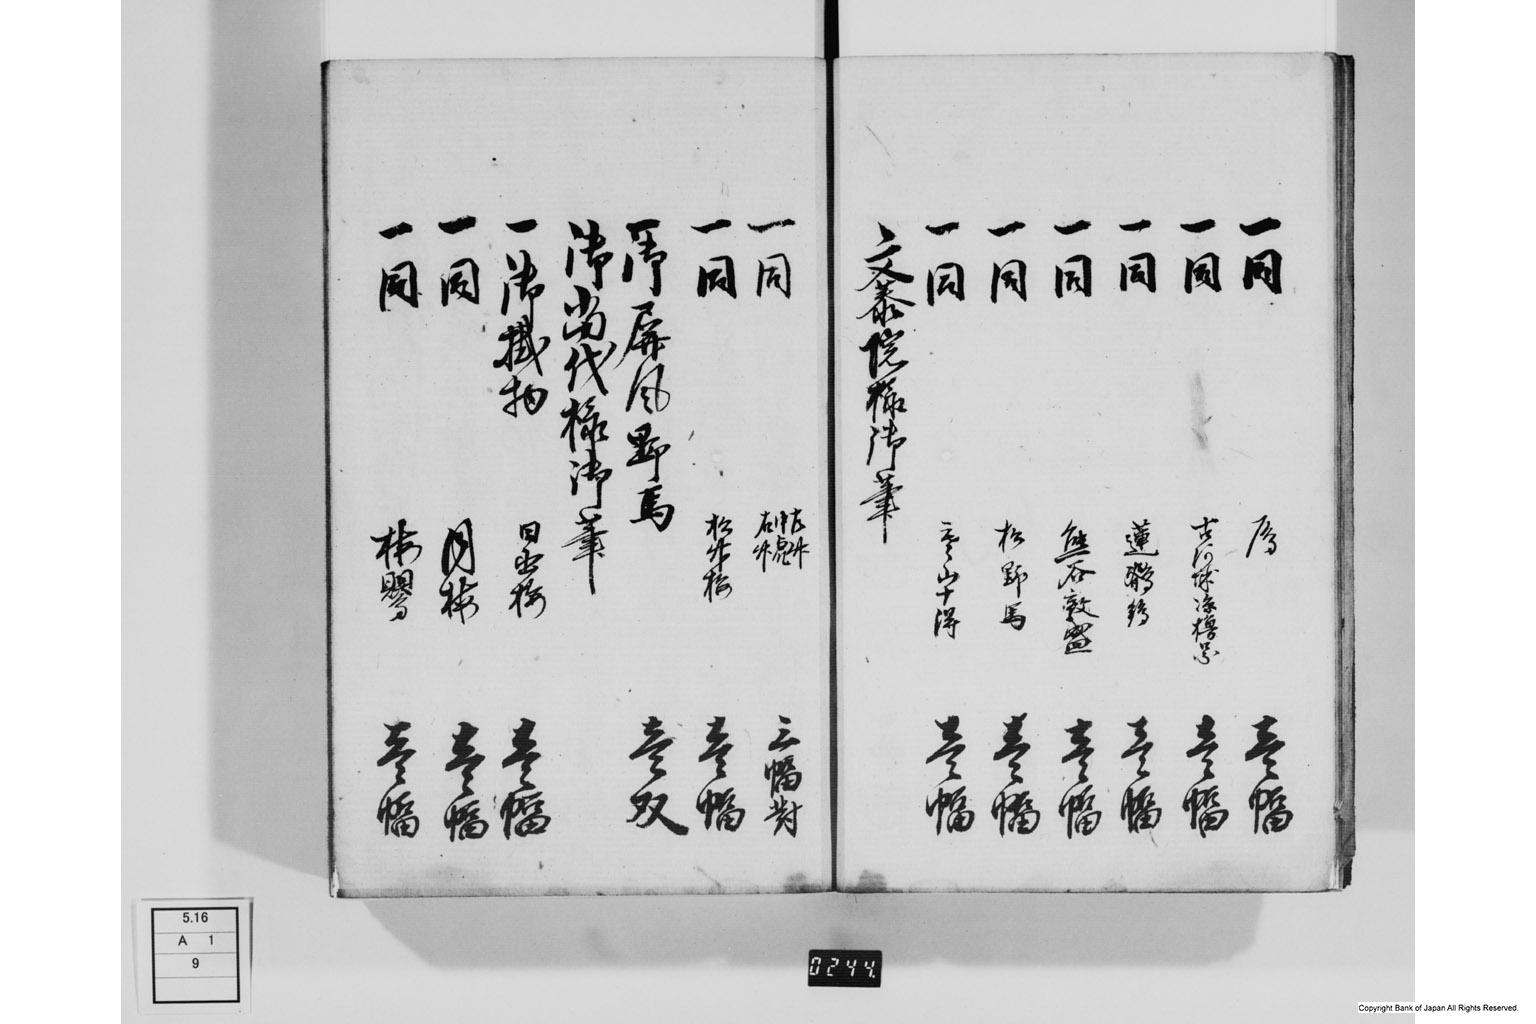 一同 壱幅
一同 壱幅
一同 蓮鷺鶉 壱幅
一同 熊谷敦盛 壱幅
一同 松野馬 壱幅
一同 壱幅
文恭院様御筆
一同 左竹 中虎 右竹 三幅対
一同 松竹梅 壱幅
一御屏風 野馬 壱双
御当代様御筆
一御掛物 日出梅 壱幅
一同 月梅 壱幅
一同 梅鸎 壱幅
5.16
A 1
9
0244
Copyright Bank of Japan All Rights Reserved.